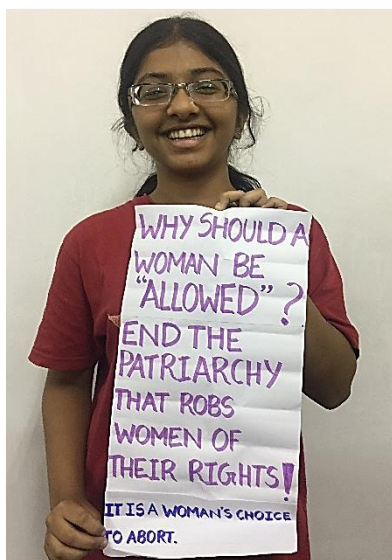 WHY SHOULD A
WOMAN BE
"ALLOWED"?
END THE
PATRIARCHY
THAT ROBS
WOMEN OF
THEIR RIGHTS!
IT IS A WOMAN'S CHOICE
TO ABORT.